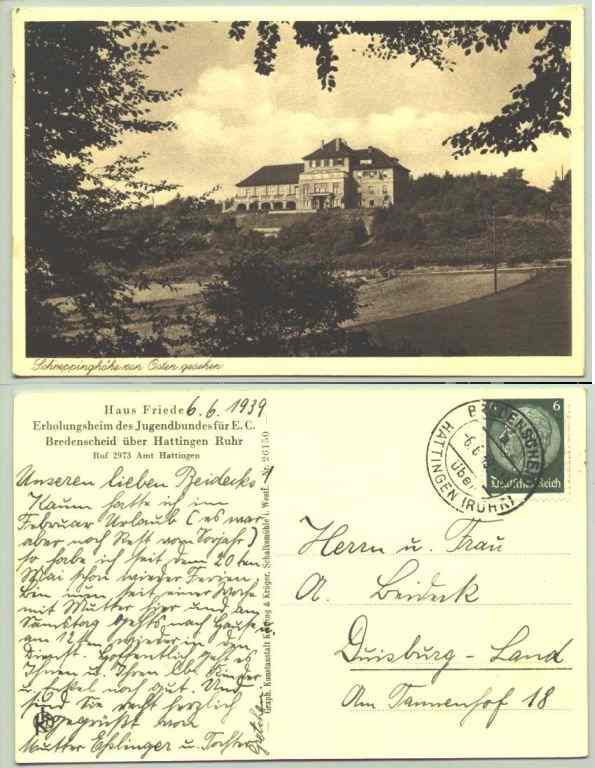 Schreppinghöhe von Osten gesehen
Haus Friede 6. 6. 1939
Erholungsheim des Jugendbundes für E. C.
Bredenscheid über Hattingen Ruhr
Ruf 2973 Amt Hattingen
Unseren lieben Beidecks!
Kaum hatte ich im
Februar Urlaub (es war
aber noch Rest vom Vorjahr)
so habe ich seit dem 20ten
Mai schon wieder Ferien.
Bin nun seit einer Woche
mit Mutter hier und am
Samstag gehts nach Hause,
am 12ten wieder in den
Dienst. Hoffentlich geht es
Ihnen u. Ihren lb. Kinder
u. Enkel noch gut. Und
sind Sie recht herzlich
gegrüßt von
Mutter Eßlinger u. Tochter
Gretchen
Graph. Kunstanstalt & Krüger, Schalksmühle i. Westf. Nr. 26150
BREDENSCHEID
über
HATTINGEN (RUHR)
6
Deutsches Reich
Herrn u. Frau
A. Beideck
Duisburg - Land
Am Tannenhof 18